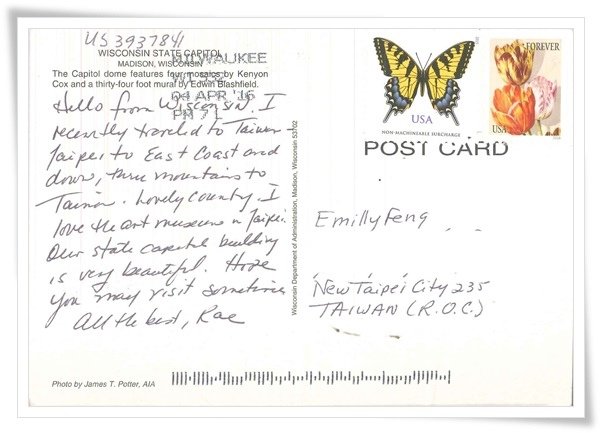 US 3937841
WISCONSIN STATE CAPITOL
MADISON, WISCONSIN
The Capitol dome features four mosaics by Kenyon
Cox and a thirty-four foot mural by Edwin Blashfield.
MILWAUKEE
WI
04 APR '16
PM 7 L
Hello from Wisconsin. I
recently traveld to Taiwan
Taipei to East Coast and
down, thru mountains to
Tainan. Lovely Country. I
love the art museums in Taipei.
Our state capital building
is very beautiful. Hope
you may visit sometime
All the best, Rae
Photo by James T. Potter, AIA
Wisconsin Department of Administration, Madison, Wisconsin 53702
USA
NON-MACHINEABLE SURCHARGE
FOREVER
USA
POST CARD
Emilly Feng
New Taipei City 235
TAIWAN (R.O.C.)